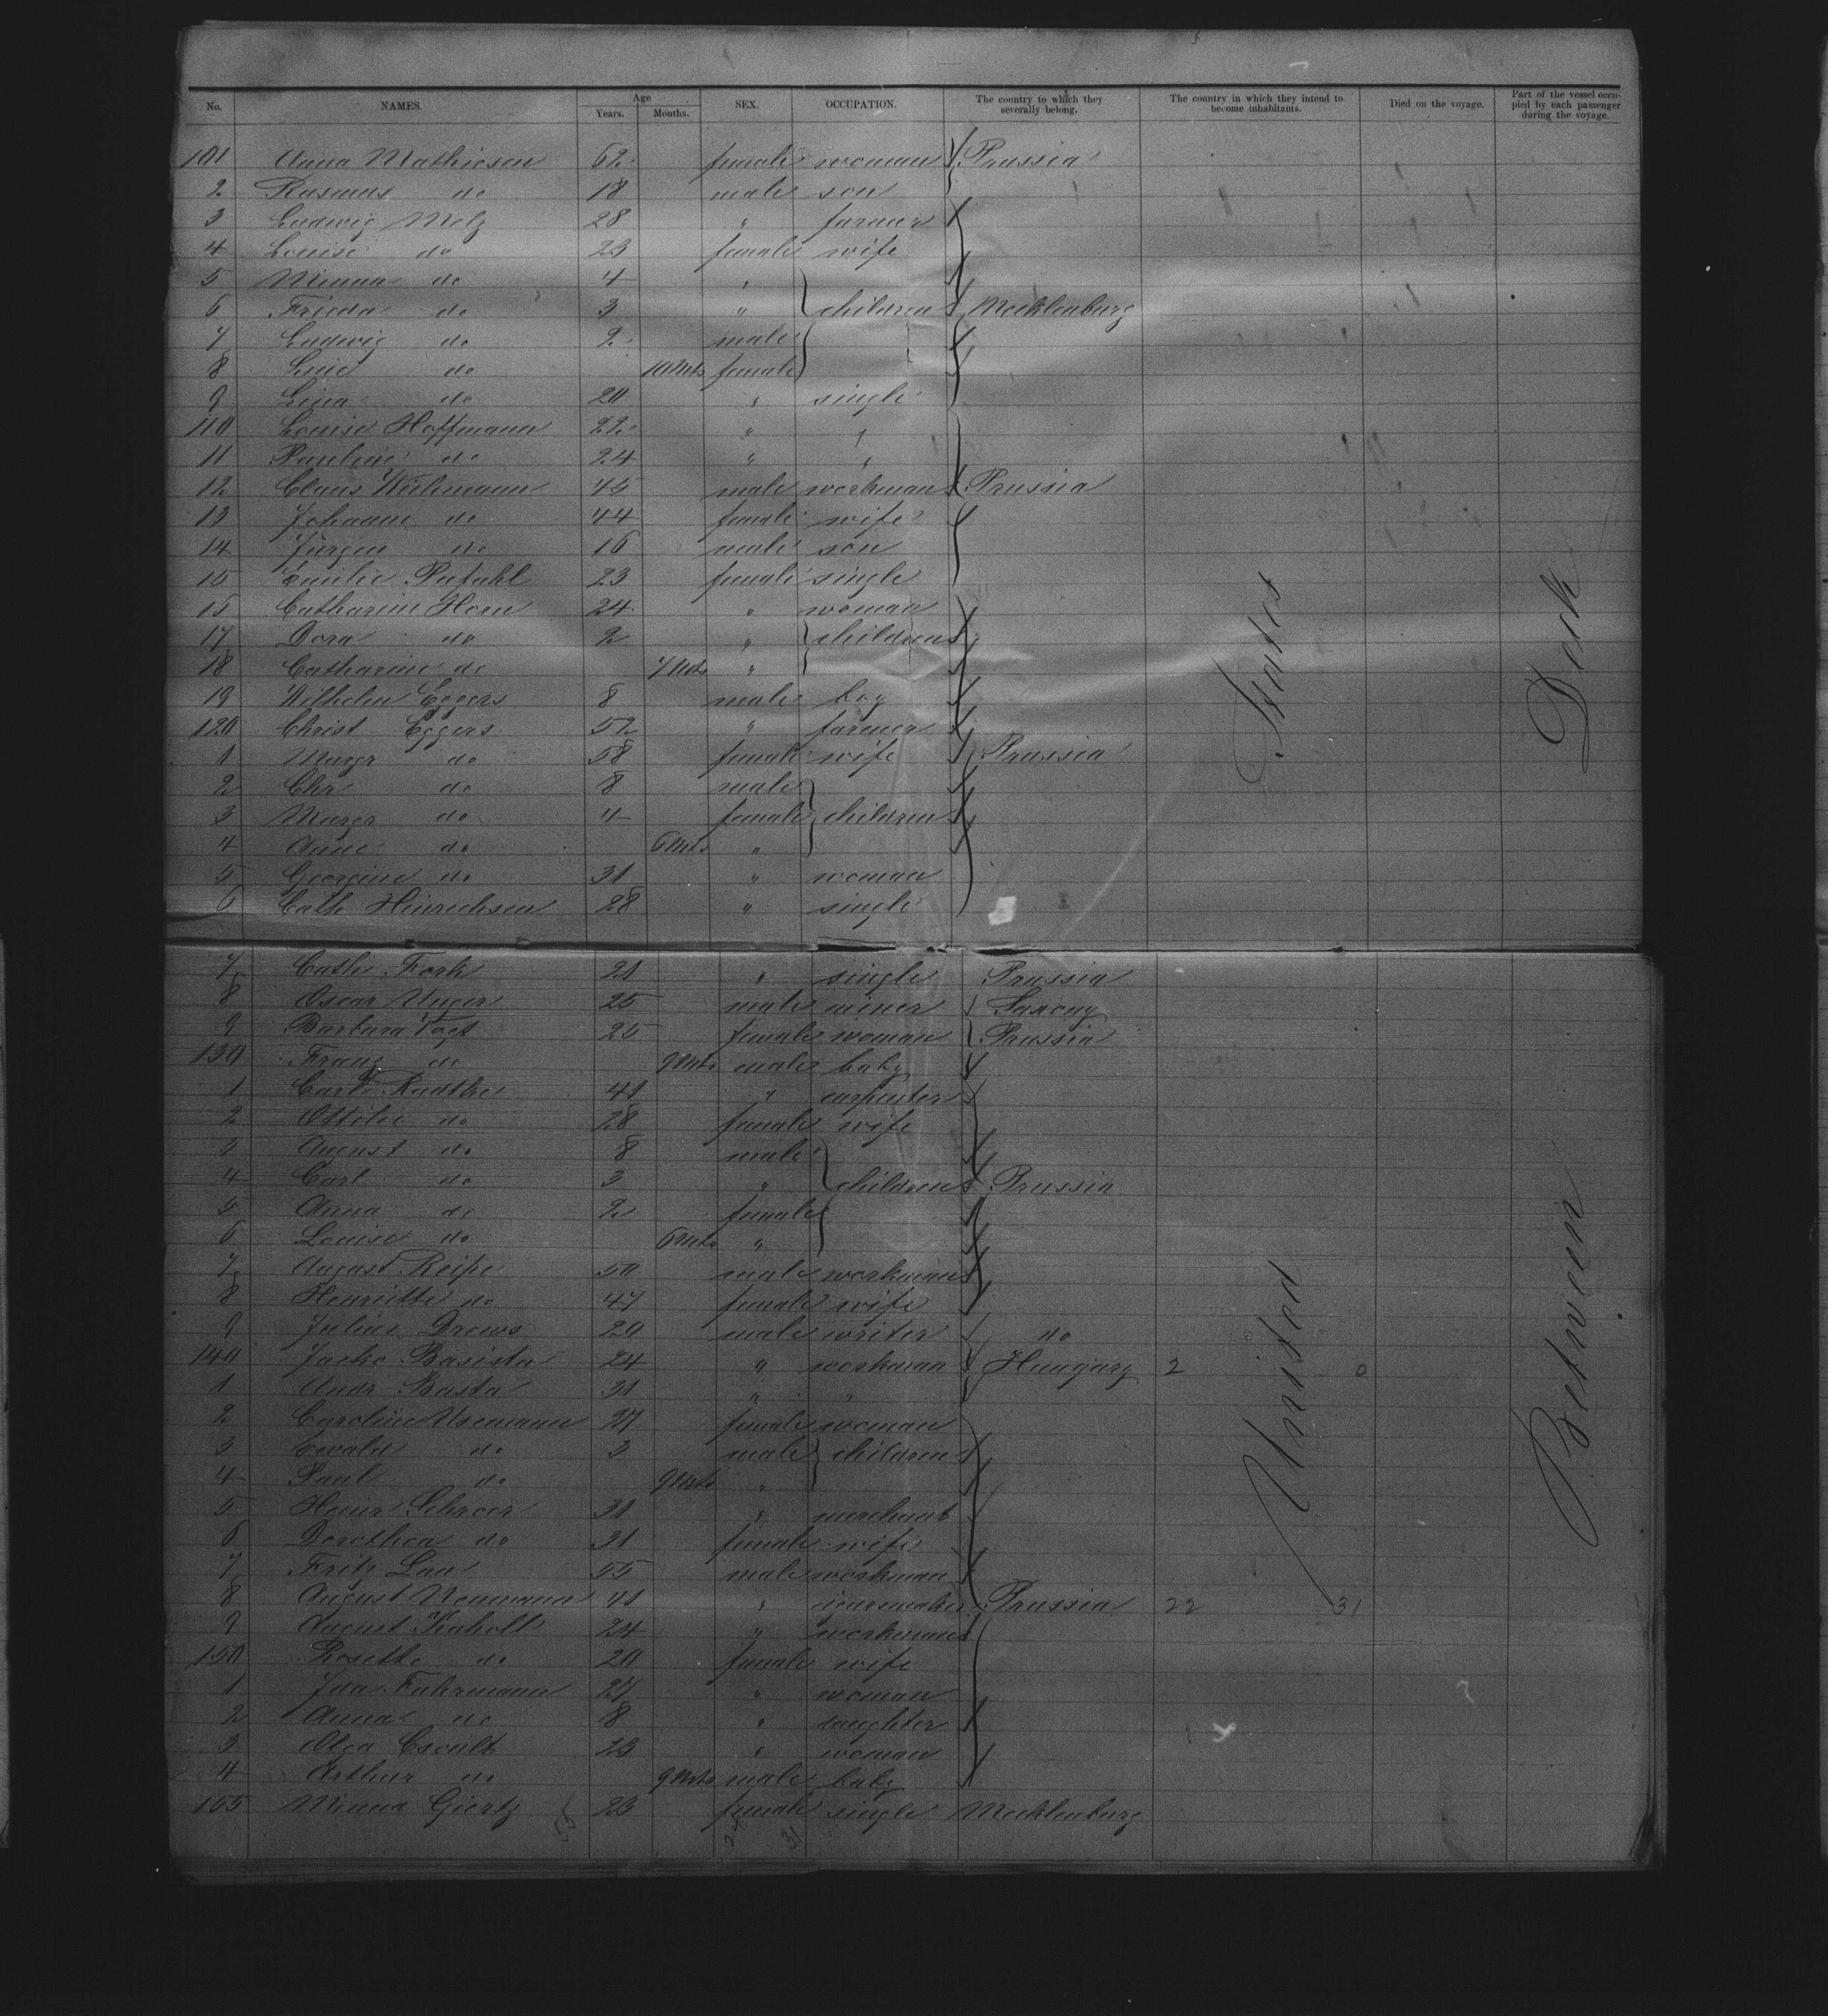 No. NAMES. Age Years. Months. SEX. OCCUPATION. The country to which they severally belong. The country in which they intend to become inhabitants. Died on the voyage. Part of the vessel occupied by each passenger during the voyage.
101 Anna Mathiesen 62 female woman Prussia
2 Rasmus do 18 male son
3 Ludwig Melz 28 " farmer
4 Louise do 23 female wife
5 Minna do 4 "
6 Frieda do 3 " children Mecklenburg
7 Ludwig do 2 male
8 Line do 10 Mts female
9 Lina do 20 " single
110 Louise Hoffmann 22 " "
11 Pauline do 24 " "
12 Claus Wichmann 45 male workman Prussia
13 Johanne do 44 female wife
14 Jürgen do 16 male son
15 Emilie Pufahl 23 female single
16 Catharine Horn 24 " woman
17 Dora do 2 " children
18 Catharine do 7 Mts "
19 Wilhelm Eggers 8 male boy
120 Christ Eggers 52 " farmer
1 Margr do 58 female wife Prussia
2 Chr do 8 male
3 Margr do 4 female children
4 Anne do 6 Mts "
5 Georgine do 31 " woman
6 Cath Hinrichsen 28 " single
7 Cath Fork 21 " single Prussia
8 Oscar Unger 25 male miner Saxony
9 Barbara Vogt 25 female woman Prussia
130 Franz do 9 Mts male baby
1 Carl Radtke 41 " carpenter
2 Ottilie do 28 female wife
3 August do 8 male
4 Carl do 3 " children Prussia
5 Anna do 2 female
6 Louise do 6 Mts "
7 August Reipe 50 male workman
8 Henriette do 47 female wife
9 Julius Drews 29 male writer do
140 Jacko Basista 24 " workman Hungary 2 0
1 Andr Basta 31 " "
2 Caroline Usemann 27 female woman
3 Ewald do 3 male children
4 Paul do 9 Mts "
5 Heinr Schroer 31 " merchant
6 Dorothea do 31 female wife
7 Fritz Lau 55 male workman
8 August Neumann 41 " Prussia 22 31
9 August Kaholl 24 " workman
150 Rosette do 20 female wife
1 Ida Fuhrmann 27 " woman
2 Anna do 8 " daughter
3 Olga 23 " woman
4 Arthur do 9 Mts male baby
155 Minna Giertz 23 female single Mecklenburg
55 24 31
United States
Between Deck